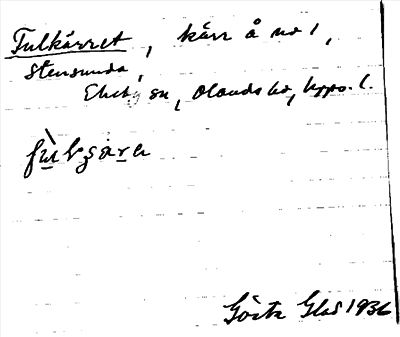 Fulkärret, kärr å no 1,
Stensunda,
Ekeby sn, Olands hd, Upps. l.
Gösta Glas 1936